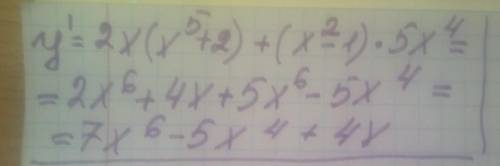 y' = 2x(x⁵+2) + (x²-1)·5x⁴ =
= 2x⁶ + 4x + 5x⁶ - 5x⁴ =
= 7x⁶ - 5x⁴ + 4x